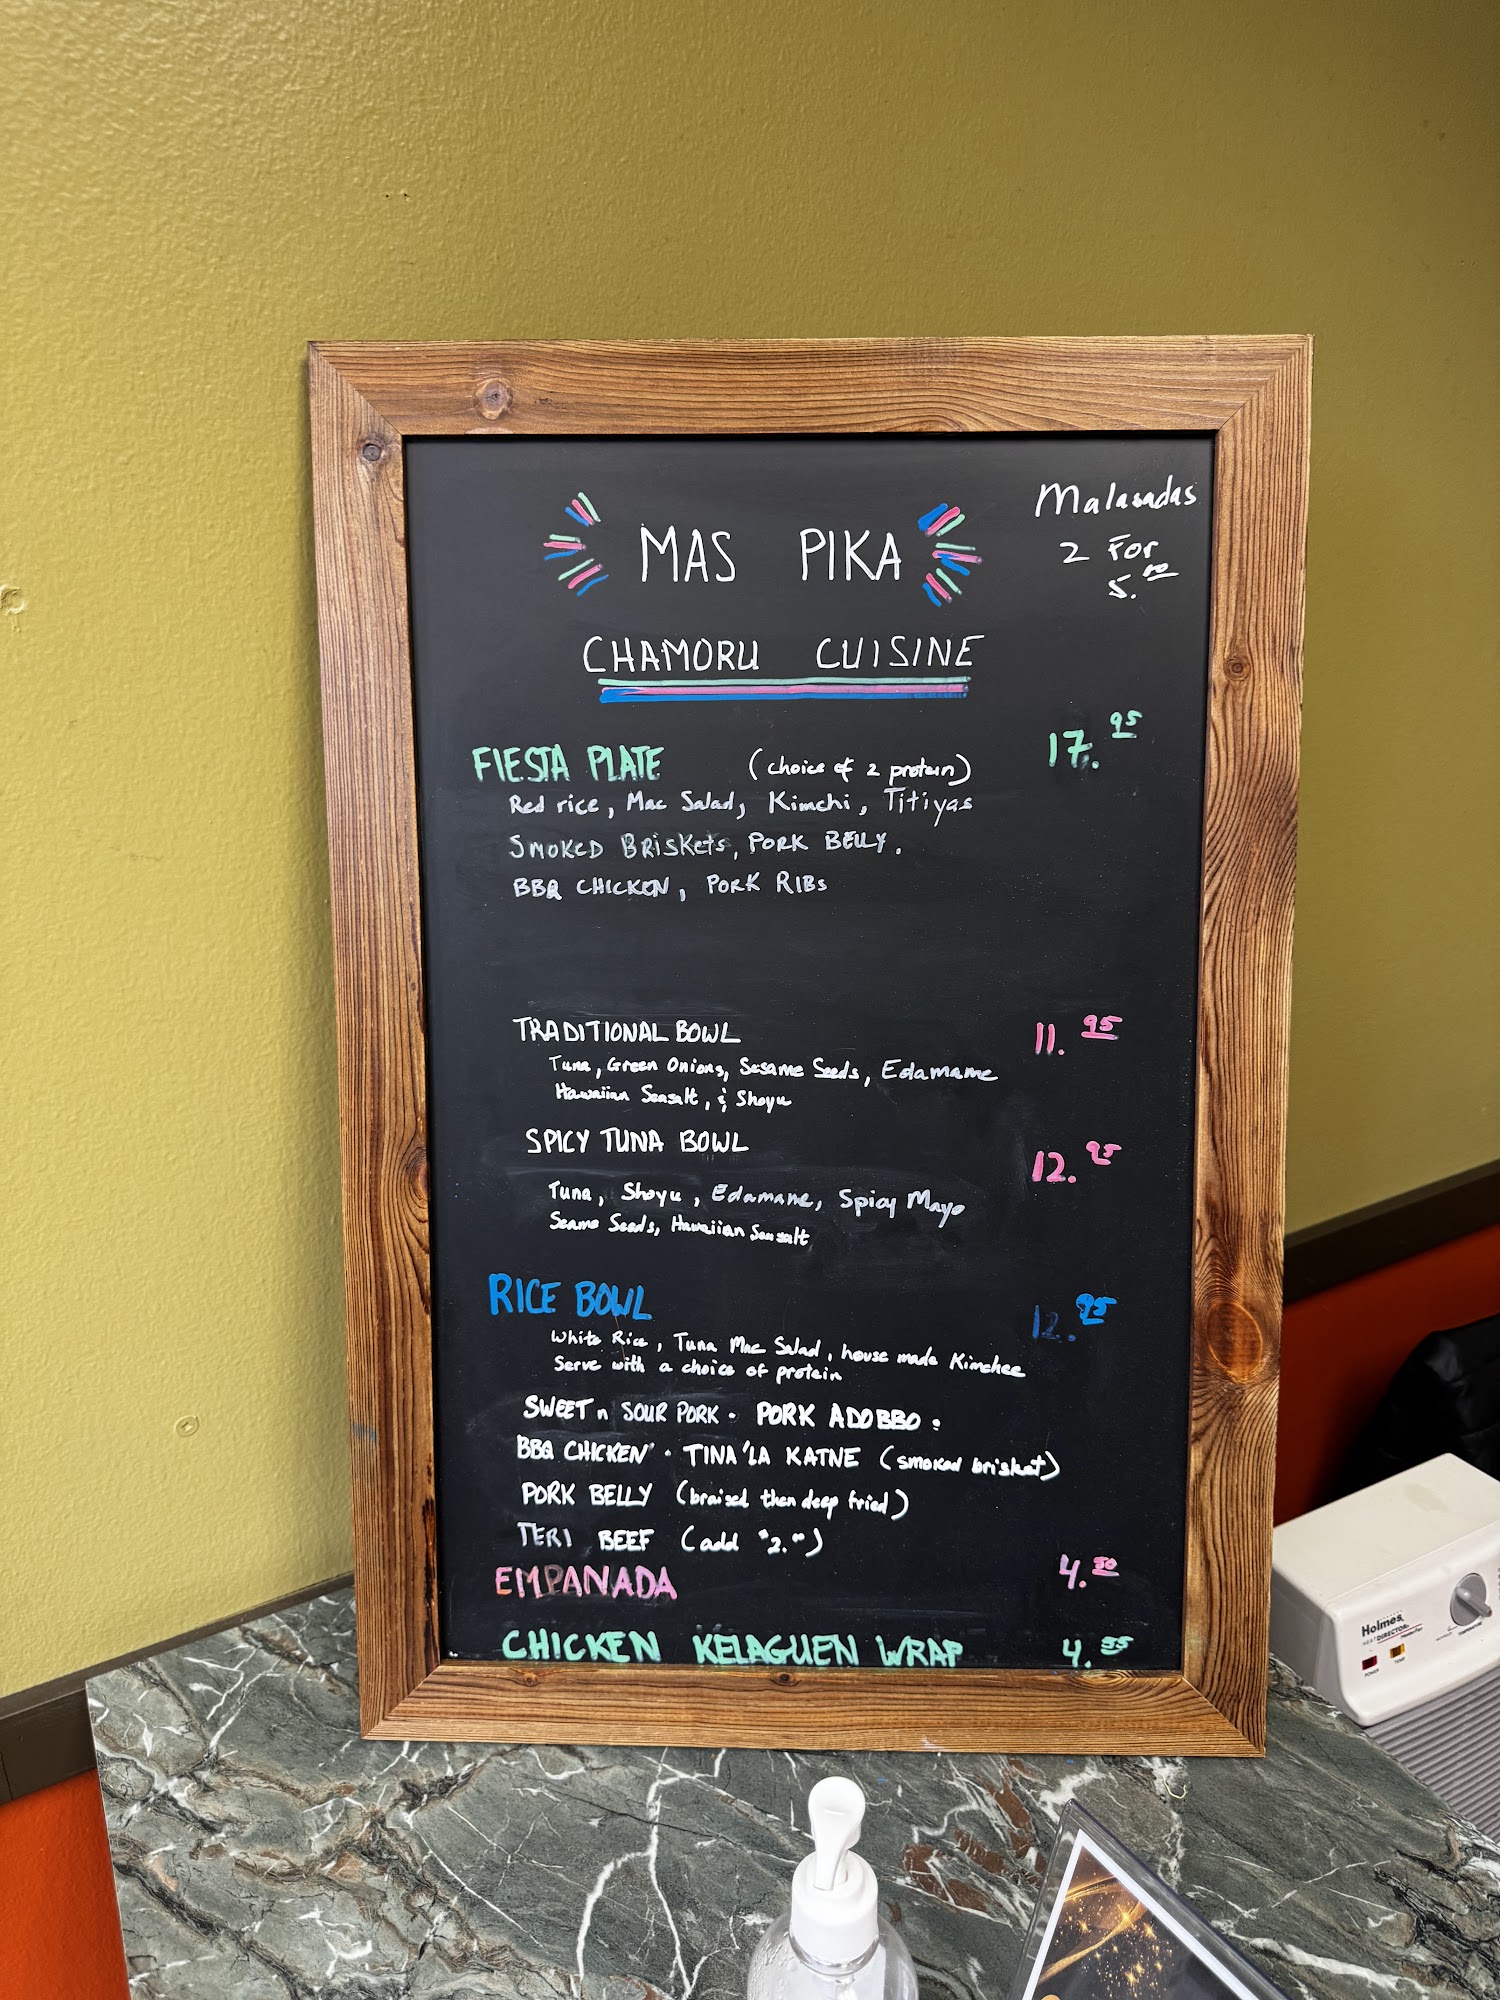 MAS PIKA
Malasadas
2 For
5.
CHAMORU CUISINE
FIESTA PLATE (choice of 2 protein) 17.95
Red rice, Mac Salad, Kimchi, Titiyas
SMOKED BRISKETS, PORK BELLY.
BBQ CHICKEN, PORK RIBS
TRADITIONAL BOWL 11.95
Tuna, Green Onions, Sesame Seeds, Edamame
Hawaiian Seasalt, & Shoyu
SPICY TUNA BOWL 12.95
Tuna, Shoyu, Edamame, Spicy Mayo
Seame Seeds, Hawaiian Seasalt
RICE BOWL 12.95
White Rice, Tuna Mac Salad, house made Kimchee
Serve with a choice of protein
SWEET n SOUR PORK · PORK ADOBBO :
BBQ CHICKEN · TINA'LA KATNE (smoked brisket)
PORK BELLY (braised then deep fried)
TERI BEEF (add "2.")
EMPANADA 4.50
CHICKEN KELAGUEN WRAP 4.
Holmes
HEAT DIRECTOR
POWER